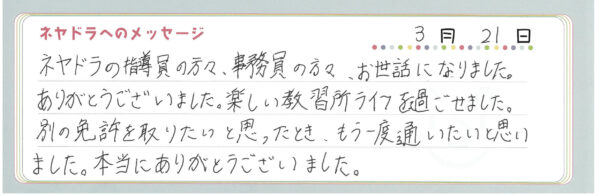 ネヤドラへのメッセージ 3月21日
ネヤドラの指導員の方々、事務員の方々、お世話になりました。
ありがとうございました。楽しい教習所ライフを過ごせました。
別の免許を取りたいと思ったとき、もう一度通いたいと思い
ました。本当にありがとうございました。